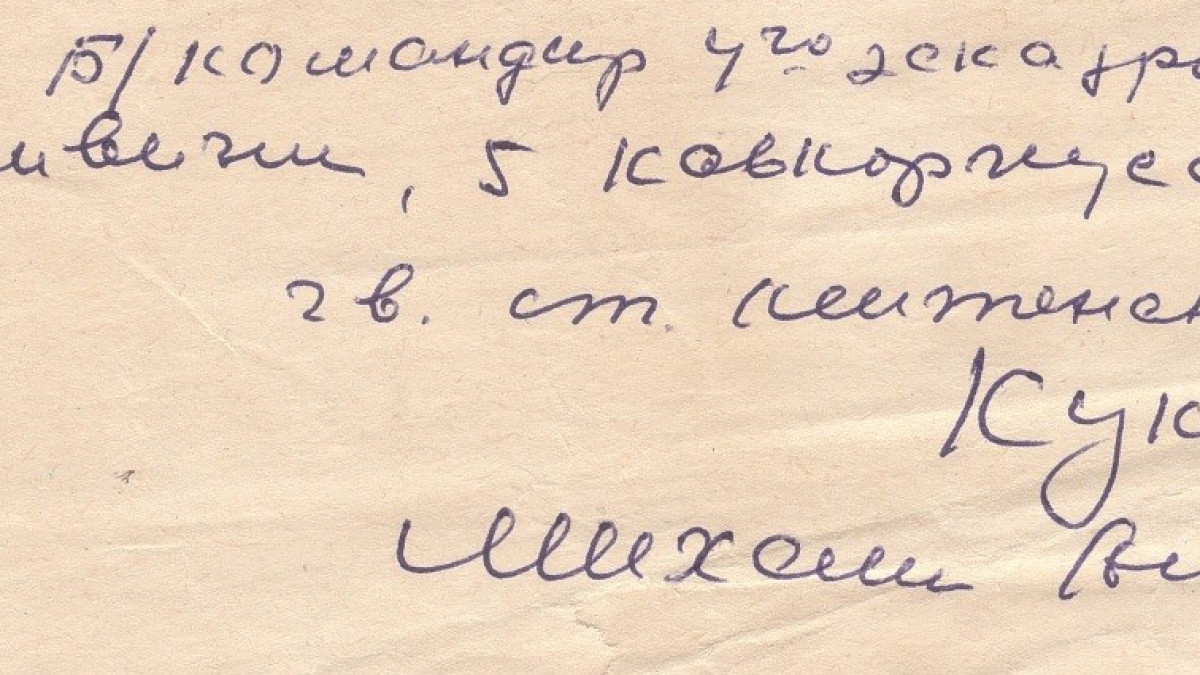 Б/командир 4го эскадро
ивизии, 5 кавкорпуса
гв. ст. лейтенан
Кук
Михаил